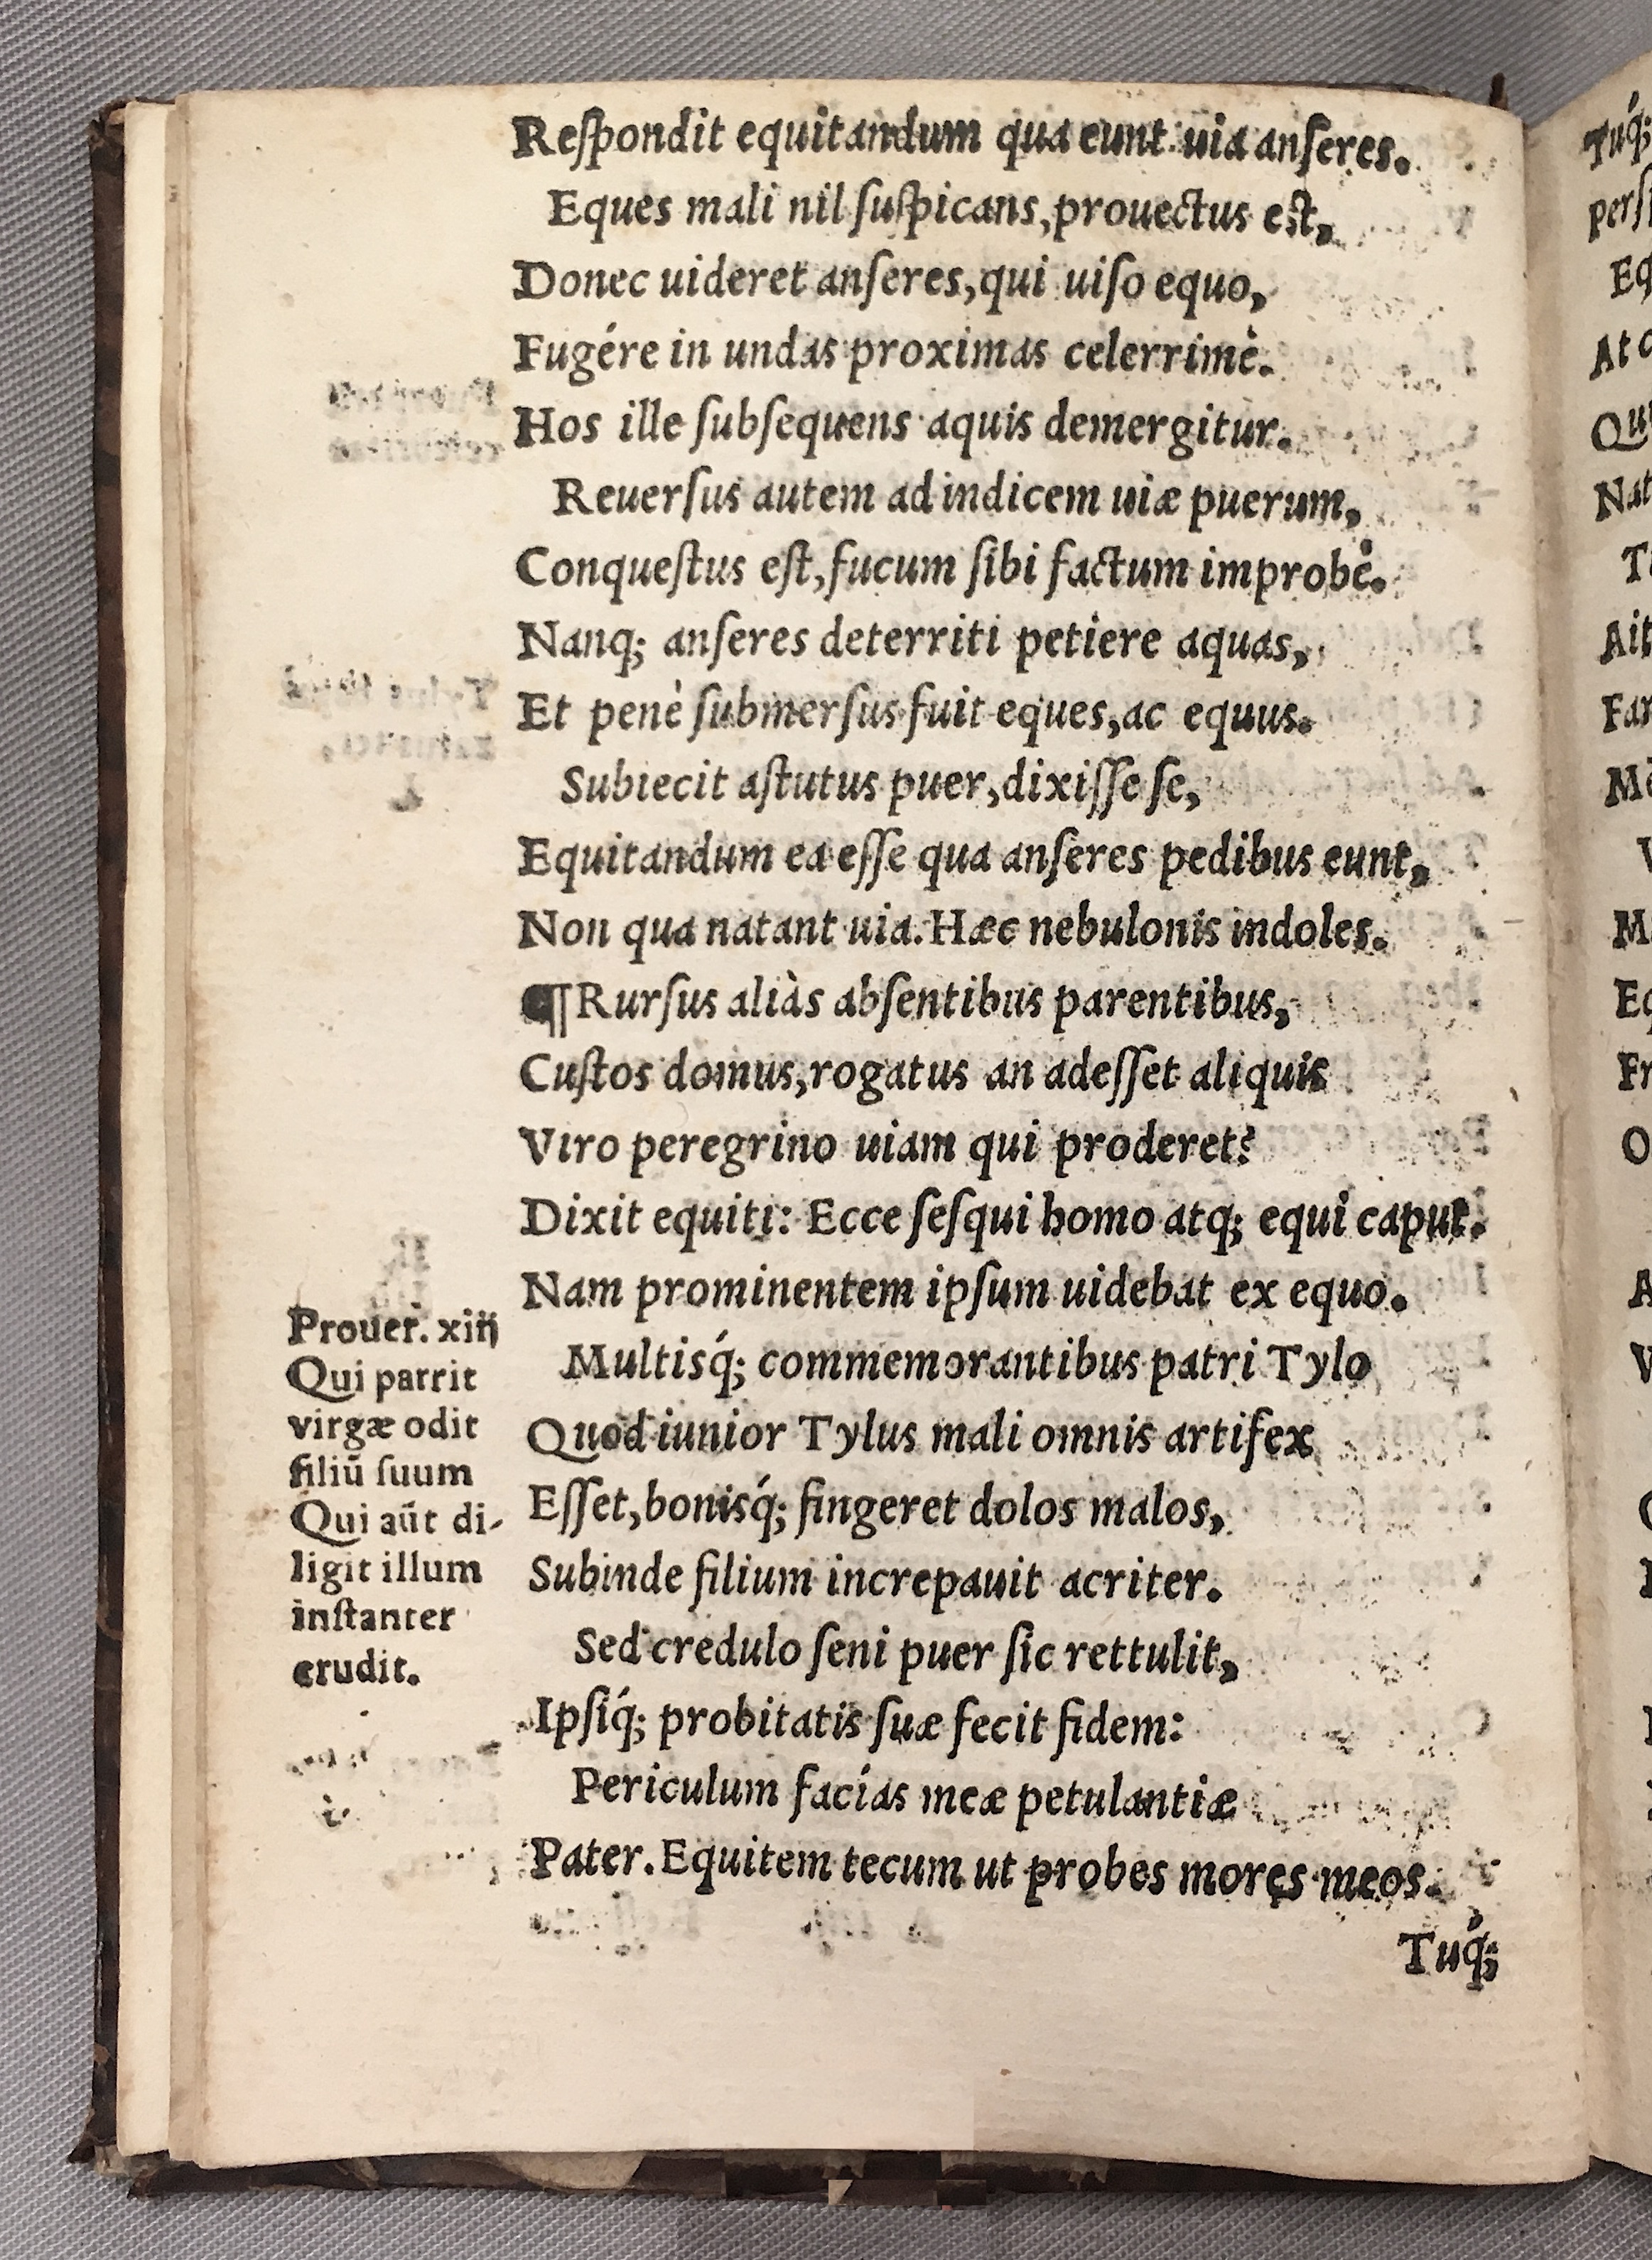 Reſpondit equitandum qua eunt uia anſeres.
Eques mali nil ſuſpicans, prouectus eſt,
Donec uideret anſeres, qui uiſo equo,
Fugére in undas proximas celerrimè.
Hos ille ſubſequens aquis demergitur.
Reuerſus autem ad indicem uiæ puerum,
Conqueſtus eſt, fucum ſibi factum improbè.
Nanq; anſeres deterriti petiere aquas,
Et penè ſubmerſus fuit eques, ac equus.
Subiecit aſtutus puer, dixiſſe ſe,
Equitandum ea eſſe qua anſeres pedibus eunt,
Non qua natant uia. Hæc nebulonis indoles.
¶ Rurſus aliàs abſentibus parentibus,
Cuſtos domus, rogatus an adeſſet aliquis
Viro peregrino uiam qui proderet?
Dixit equiti: Ecce ſeſqui homo atq; equi caput.
Nam prominentem ipſum uidebat ex equo.
Multisq́; commemorantibus patri Tylo
Quod iunior Tylus mali omnis artifex
Eſſet, bonisq́; fingeret dolos malos,
Subinde filium increpauit acriter.
Sed credulo ſeni puer ſic rettulit,
Ipſiq́; probitatis ſuæ fecit fidem:
Periculum facías meæ petulantiæ
Pater. Equitem tecum ut probes mores meos.
Tuq́;
Prouer. xiij
Qui parrit
virgæ odit
filiū ſuum
Qui aūt di-
ligit illum
inſtanter
erudit.
Tuq́;
perſ
Eq
At
Qu
Nat
T
Ait
Far
V
M
Fr
O
A
V